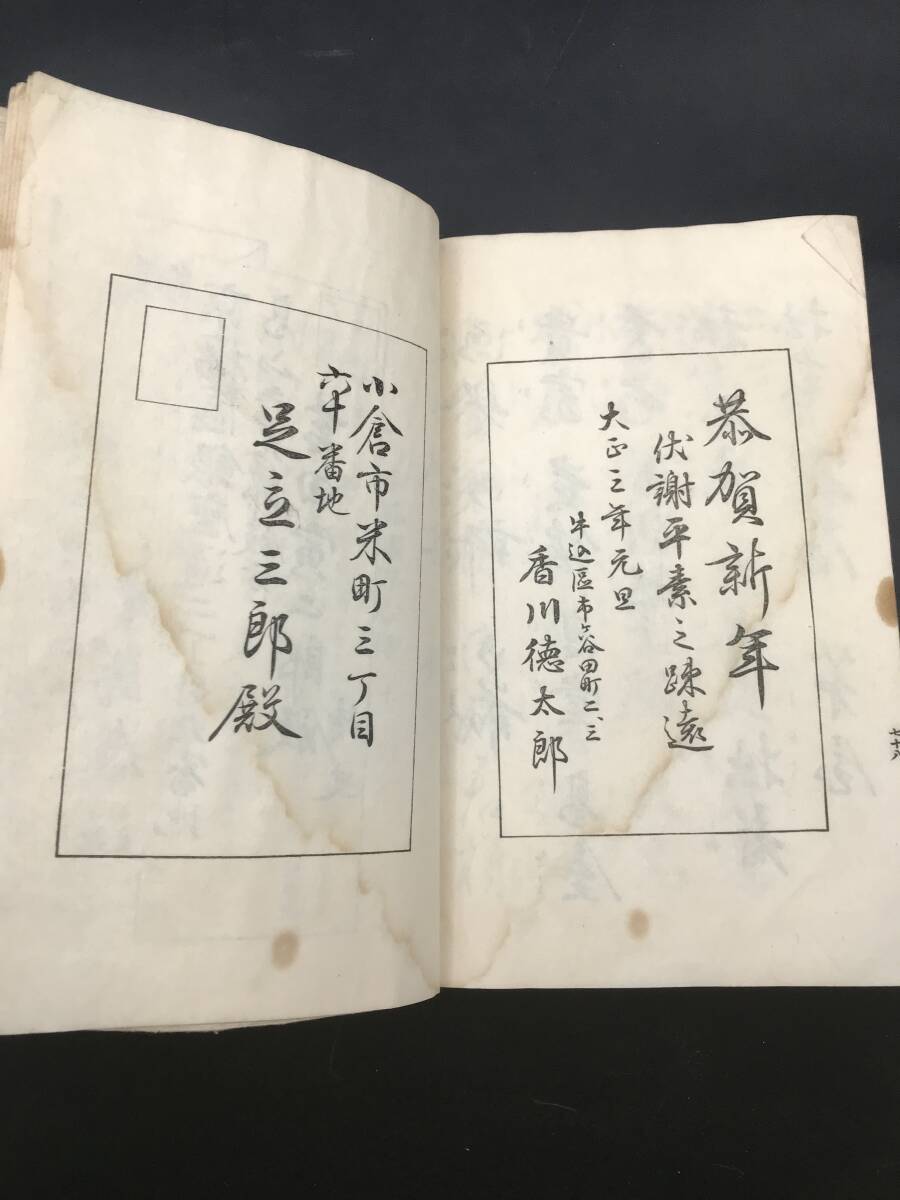 恭賀新年
伏謝平素之疎遠
大正三年元旦
牛込區市ヶ谷田町二、三
香川徳太郎
七十八
小倉市米町三丁目
六十番地
足立三郎殿